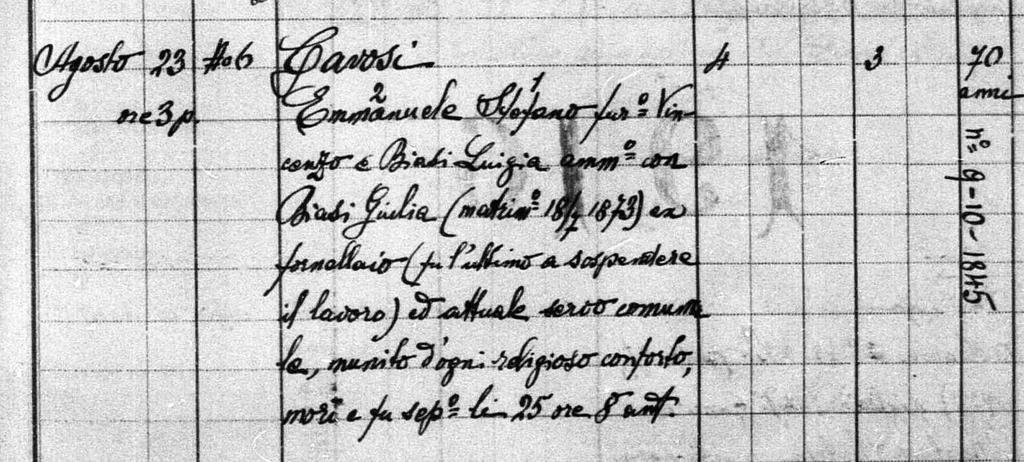 Agosto 23 No 6 Cavosi 4 3 70
ore 3 p. Emmanuele 2 Stefano 1 fu r.º Vin- anni
cenzo e Biasi Luigia amm.º con
Biasi Giulia (matrim.º 18/7 1873) ex
fornellaio (fu l'ultimo a sospendere
il lavoro) ed attuale servo comuna
le, munito d'ogni religioso conforto,
morì e fu sep.º li 25 ore 8 ant.
nº 9-10-1845